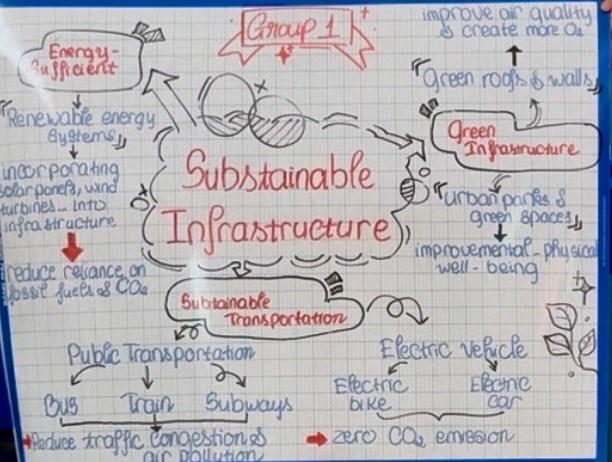 Group 1
Energy-
Sufficient
"Renewable energy
systems"
incorporating
solar panels, wind
turbines... into
infrastructure
reduce reliance on
fossil fuels & CO2
improve air quality
& create more O2
"Green roofs & walls"
Green
Infrastructure
"urban parks &
green spaces"
improvemental-physical
well-being
Substainable
Infrastructure
Substainable
Transportation
Public Transportation
Bus Train Subways
Reduce traffic congestion &
air pollution
Electric vehicle
Electric
bike
Electric
car
zero CO2 emission